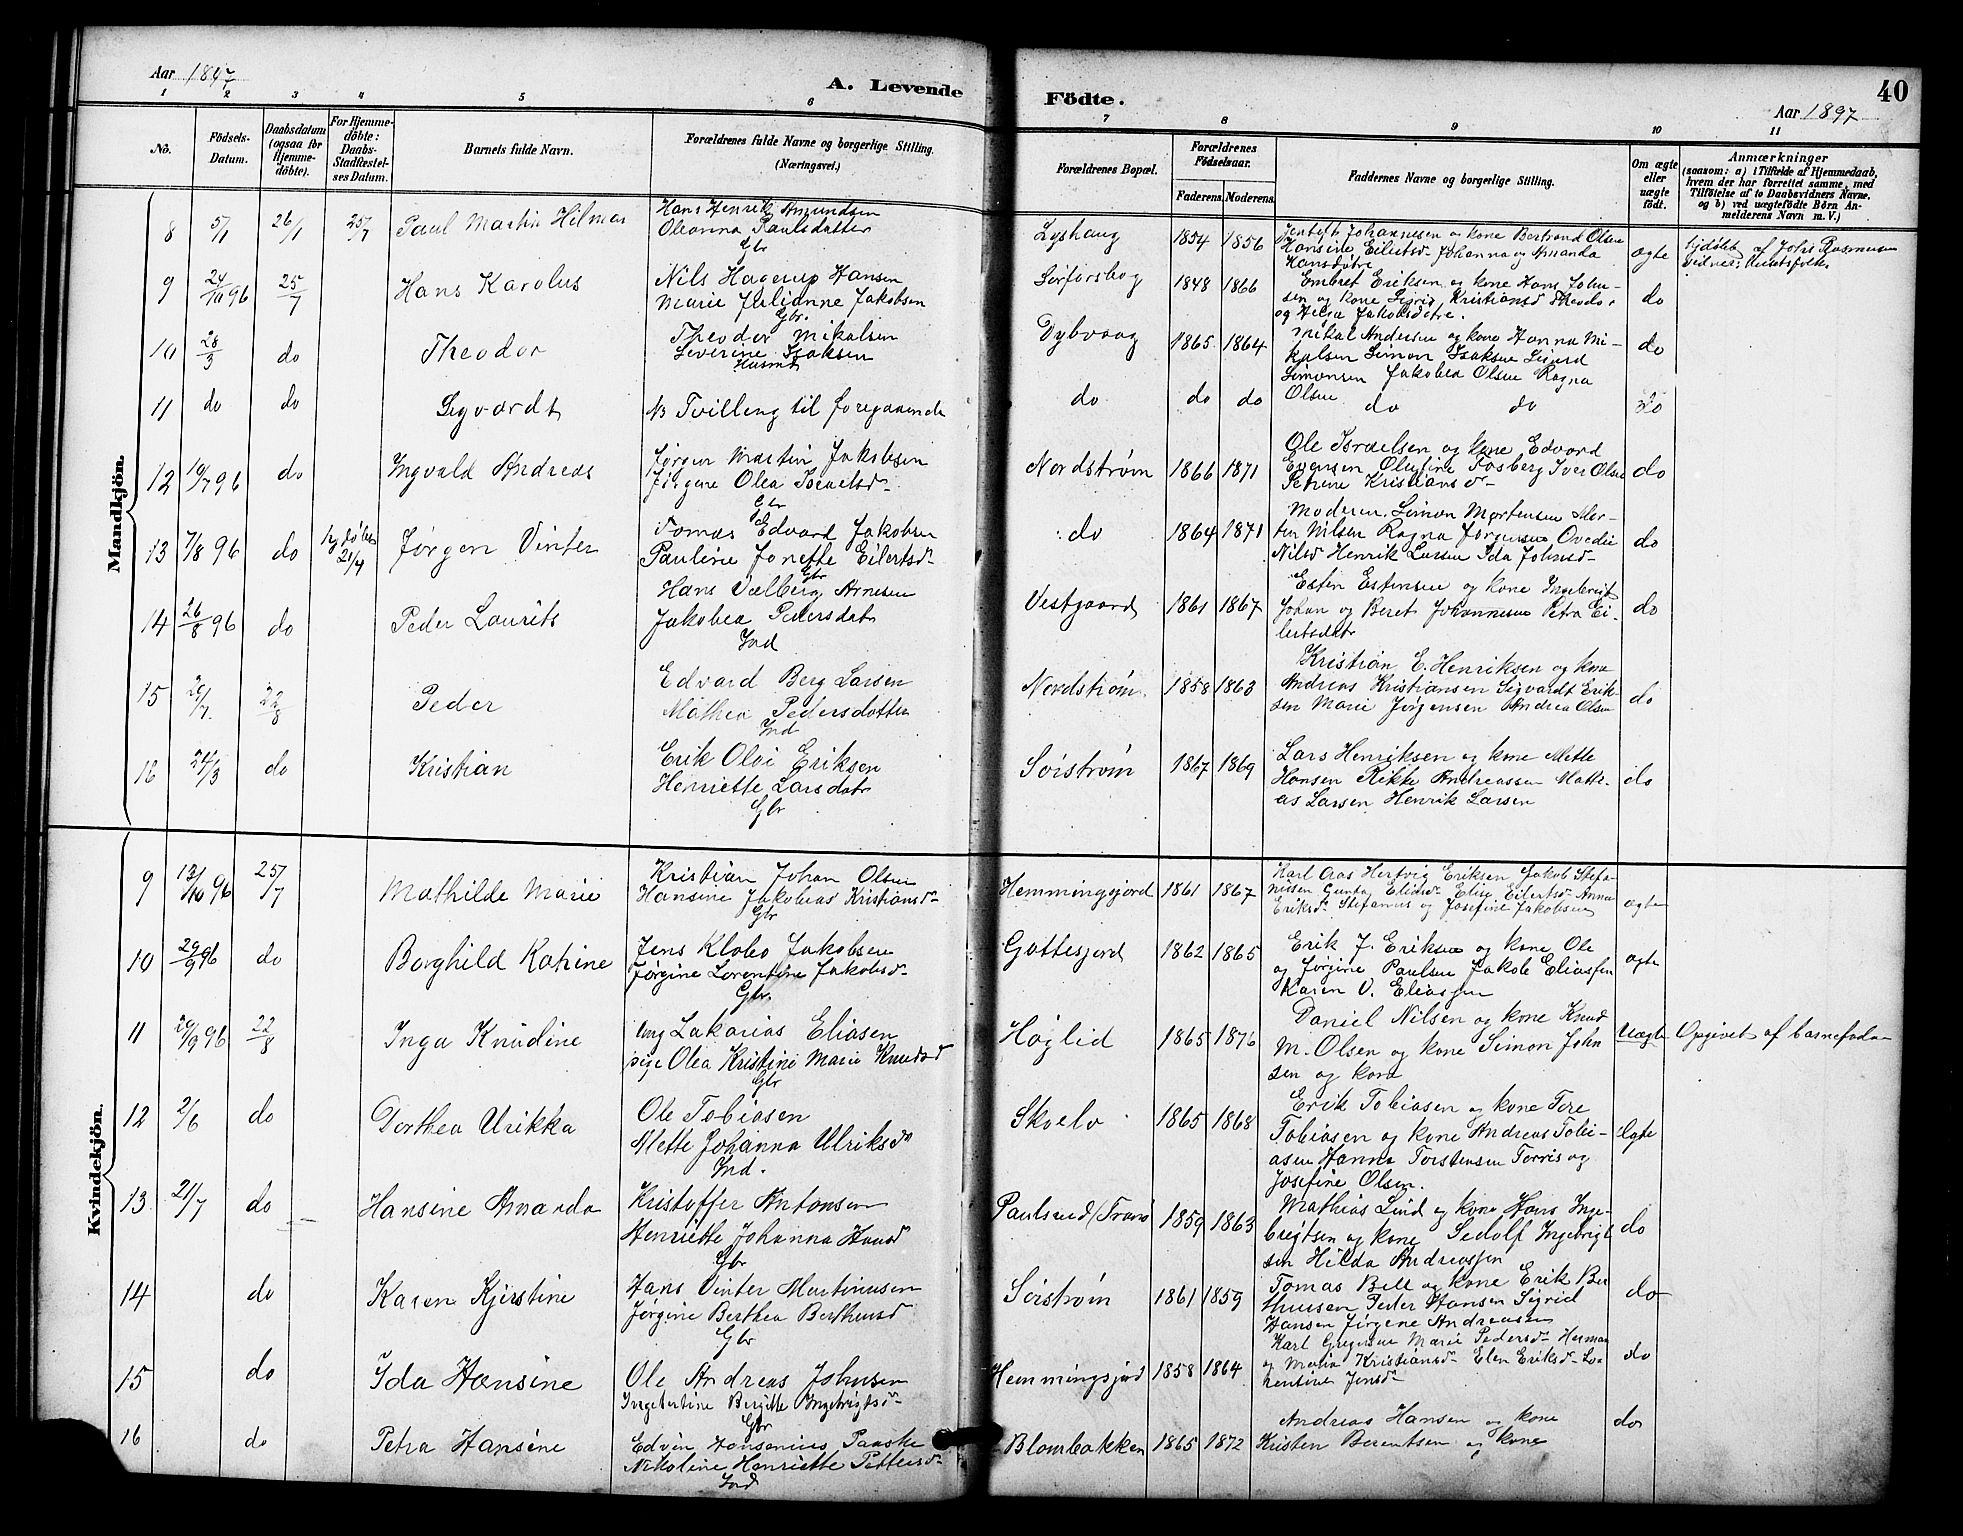 Aar 1897
A. Levende Födte.
Aar 1897
40
1 2 3 4 5 6 7 8 9 10 11
No.
Födsels-Datum.
Daabsdatum (ogsaa for Hjemme-döbte).
For Hjemme-döbte: Daabs-Stadfæstel-ses Datum.
Barnets fulde Navn.
Forældrenes fulde Navne og borgerlige Stilling. (Næringsvei.)
Forældrenes Bopæl.
Forældrenes Födselsaar.
Faderens. Moderens.
Faddernes Navne og borgerlige Stilling.
Om ægte eller uægte födt.
Anmærkninger (saasom: a) i Tilfælde af Hjemmedaab, hvem der har forrettet samme, med Tilföielse af to Daabsvidners Navne, og b) ved uægtefödte Börn An-melderens Navn m. V.)
Mandkjön.
8 5/1 26/1 25/7 Paul Martin Hilmar
Hans Henrik Amundsen
Oleanna Paulsdatter
Gbr
Lyshaug 1854 1856
Johannesen og kone Bertrand Olsen
Hansine Eilertsd Johanna og Amanda
Hansdøtre
ægte
af Johs Rasmussen
9 24/10 96 25/7 Hans Karolus
Nils Hagerup Hansen
Marie Julianne Jakobsen
Gbr.
Sørforsbog 1848 1866
Embret Eriksen og kone Hans Johan-
sen og kone Sigrid Kristiansd Theodor
og Helga Jakobsdtre.
do
10 28/3 do Theodor
Theodor Mikalsen
Severine Isaksen
Husmd
Dybvaag 1865 1864
Mikal Andersen og kone Hanna Mi-
kalsen Simon Isaksen Sigurd
Simonsen Jakobea Olsen Ragna
Olsen
do
11 do do Sigvardt
NB Tvilling til foregaaende
do do do do do do
12 19/7 96 do Ingvald Andreas
Jørgen Martin Jakobsen
Jørgine Olea Israelsd-
Gbr
Nordstrøm 1866 1871
Ole Israelsen og kone Edvard
Evensen Olufine Fosberg Iver Olsen
Petrine Kristiansd-
do
13 7/8 96 do 21/4 Jørgen Vinter
Tomas Edvard Jakobsen
Pauline Jonette Eilertsd-
Gbr
do 1864 1871
Moderen. Simon Mortensen Mor-
ten Nilsen Ragna Jørgensen Ovedie
Nilsd Henrik Larsen Ida Johnsd-
do
14 26/8 96 do Peder Laurits
Hans Valberg Arnesen
Jakobea Pedersdatr
Ind
Vestgaard 1861 1867
Esten Estensen og kone Ingebrigt
Johan og Beret Johannesen Petra Ei-
lertsdatr
do
15 20/7. 22/8 Peder
Edvard Berg Larsen
Mathea Pedersdotter
Ind
Nordstrøm. 1858 1863
Kristian E. Henriksen og kone
Andreas Kristiansen Sigvardt Erik-
sen Marie Jørgensen Andrea Olsen
do
16 24/3 do Kristian
Erik Olai Eriksen
Henriette Larsdatr
Gbr
Sörstrøm 1867 1869
Lars Henriksen og kone Mette
Hansen Rikke Andreassen Math-
as Larsen Henrik Larsen
do
Kvindekjön.
9 13/10 96 25/7 Mathilde Marie
Kristian Johan Olsen
Hansine Jakobeas Kristiansd-
Gbr
Hemmingsjord 1861 1867
Karl Aas Hertvig Eriksen Jakob Stefa-
nussen Elise Eilertsd Anna
Eriksd Stefanus og Josefine Jakobsen
ægte
10 29/9 96 do Borghild Katrine
Jens Klobo Jakobsen
Jørgine Lorentine Jakobsd-
Gbr.
Gottesjord 1862 1865
Erik J. Eriksen og kone Ole
og Jørgine Paulsen Jakob Eliassen
Karen V. Eliassen
ægte
11 20/9 96 22/8 Inga Knudine
Ung Zakarias Eliasen
pige Olea Kristine Marie Knudsd
Gbr
Høglid 1865 1876
Daniel Nilsen og kone Knud
M. Olsen og kone Simon John
sen og kone
Uægte
Opgivet af barnefader
12 2/6 do Dorthea Ulrikka
Ole Tobiasen
Mette Johanna Ulriksd
Ind.
Skoelv 1865 1868
Erik Tobiasen og kone Tore
Tobiasen og kone Andreas Tobi-
asen Hanna Torstensen Torris og
Josefine Olsen.
ægte
13 21/7 do Hansine Amanda
Kristoffer Antonsen
Henriette Johanna Hansd
Gbr
Paulsrud/Tranø 1859 1863
Mathias Lind og kone Hans Inge-
brigtsen og kone Sedolf Ingebrigt
sen Hilda Andreassen
do
14 do Karen Kjerstine
Hans Vinter Martinusen
Jørgine Berthea Berthensd
Gbr
Sörstrøm 1861 1859
Tomas Bell og kone Erik Ber
thensen Peder Hansen Sigrid
Hansen Jörgene Andreasen
do
15 do Ida Hansine
Ole Andreas Johnsen
Ingebertine Bergitte Ingebrigtsd-
Gbr
Hemmingsjord 1858 1864
Karl Gregersen Marie Pedersd- Herman
og Maria Kristiansd- Elen Eriksd- Lo-
rentine Jensd-
do
16 do Petra Hansine
Edvin Hansenius Paaske
Nikoline Henriette Pettersd-
Ind
Blombakken 1865 1872
Andreas Hansen og kone
Kristen Berentsen og kone
do